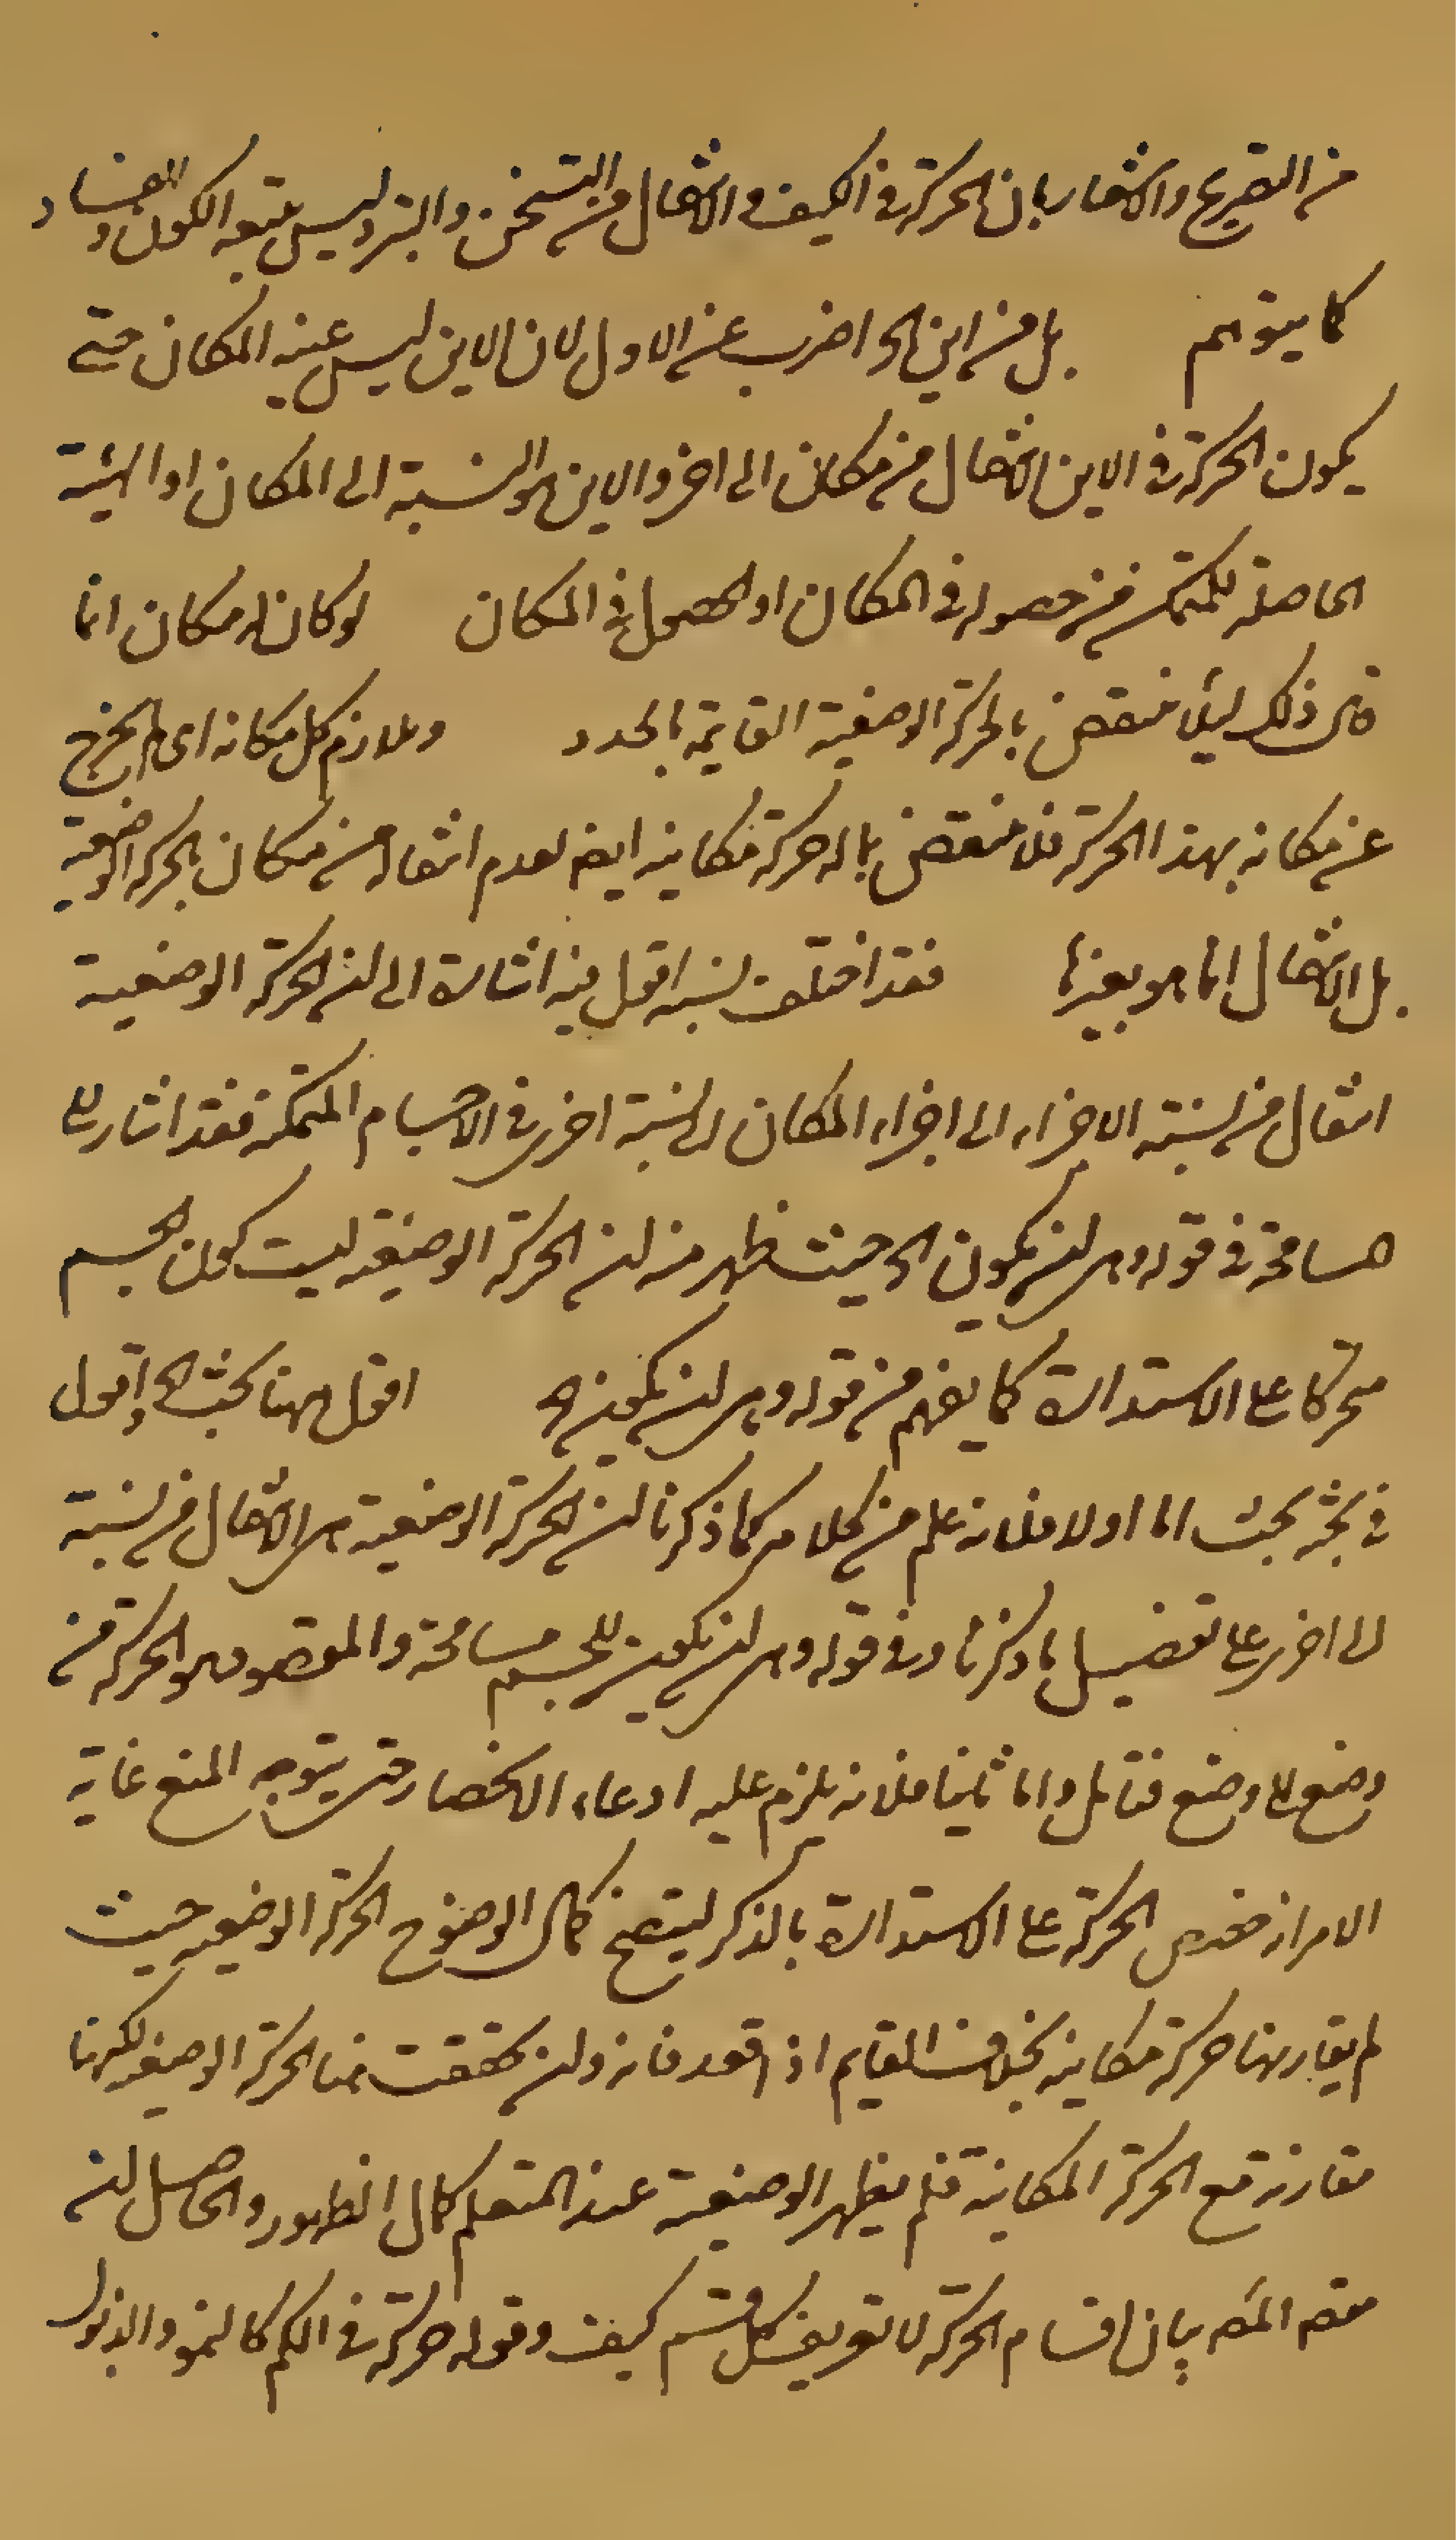 من التصريح والاشعار بان الحركة في الكيف والانتقال من التسخن والتبرد ليس يتبعه الكون والفساد
كما يتوهم بل من اين الخ اضرب عن الاول لان الاين ليس عين المكان حتى
يكون الحركة في الاين انتقال من مكان الى اخر والاين هو النسبة الى المكان او الهيئة
الحاصلة للمتمكن من حصوله في المكان او الحصول في المكان لو كان له مكان انما
قال ذلك ليلا ينتقض بالحركة الوضعية القايمة بالمحدد وملازم كل مكانه اى لم يخرج
عن مكانه بهذا الحركة فلا ينتقض بما له حركة مكانية ايضا لعدم انتقاله من مكان بالحركة الوضعية
بل الانتقال انما هو بغيرها فقد اختلف نسبة اقول فيه اشارة الى ان الحركة الوضعية
انتقال من نسبة الاجزاء الى اجزاء المكان الى نسبة اخرى في الاجسام المتمكنة فقد اشار الى
مسامحة في قوله وهى ان يكون الخ حيث ظهر منه ان الحركة الوضعية ليست كون الجسم
متحركا على الاستدارة كما يفهم من قوله وهى ان يكون الخ اقول ههنا بحث الخ واقول
في بحثه بحث اما اولا فلانه علم من كلامه كما ذكرنا ان الحركة الوضعية هى الانتقال من نسبة
الى اخرى على تفصيل ما ذكرنا وفي قوله وهى ان يكون للجسم مسامحة والمقصود هو الحركة من
وضع الى وضع فتامل واما ثانيا فلانه يلزم عليه ادعاء الانحصار حتى يتوجه المنع غاية
الامر انه خصص الحركة على الاستدارة بالذكر ليتضح كمال الوضوح الحركة الوضعية حيث
لم يقارنها حركة مكانية بخلاف القايم اذا قعد فانه وان تحققت فيها الحركة الوضعية لكنها
مقارنة مع الحركة المكانية فلم يظهر الوضعية عند المتعلم كمال الظهور والحاصل ان
مقصد المص بيان اقسام الحركة لا تعريف كل قسم كيف وقوله حركة في الكم كالنمو والذبول